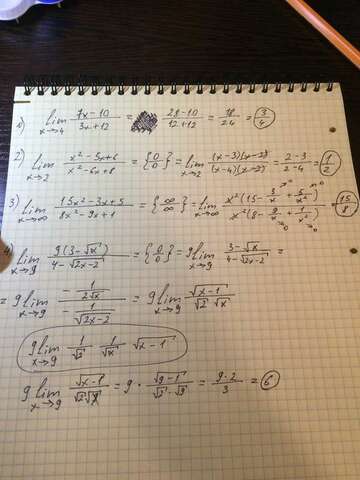 1) lim x→4 (7x-10)/(3x+12) = (28-10)/(12+12) = 18/24 = 3/4
2) lim x→2 (x²-5x+6)/(x²-6x+8) = {0/0} = lim x→2 ((x-3)(x-2))/((x-4)(x-2)) = (2-3)/(2-4) = 1/2
3) lim x→∞ (15x²-3x+5)/(8x²-9x+1) = {∞/∞} = lim x→∞ x²(15-3/x+5/x²)/x²(8-9/x+1/x²) = 15/8
lim x→9 9(3-√x)/(4-√(2x-2)) = {0/0} = 9 lim x→9 (3-√x)/(4-√(2x-2)) =
= 9 lim x→9 (-1/(2√x))/(-1/√(2x-2)) = 9 lim x→9 √(x-1)/(√2 √x)
9 lim x→9 1/√2 1/√x √(x-1)
9 lim x→9 √(x-1)/(√2 √x) = 9 · √(9-1)/(√2 · √9) = 9·2/3 = 6